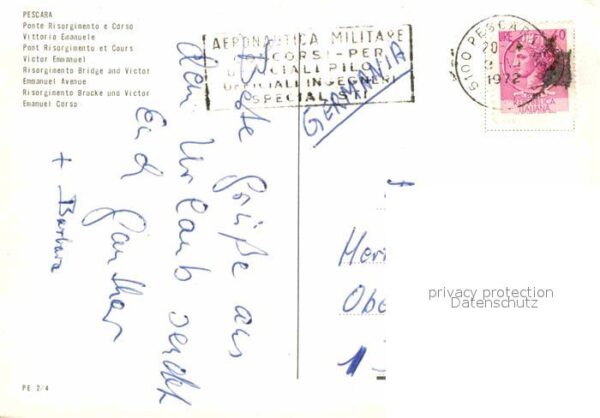 PESCARA
Ponte Risorgimento e Corso
Vittorio Emanuele
Pont Risorgimento et Cours
Victor Emmanuel
Risorgimento Bridge and Victor
Emmanuel Avenue
Risorgimento Brucke und Victor
Emanuel Corso
AERONAUTICA MILITARE
CONCORSI-PER
UFFICIALI PILOTI
UFFICIALI INGEGNERI
SPECIALISTI
GERMANIA
6100 PESCARA
20
1972
LIRE
ITALIANA
Beste Grüße aus
dem Urlaub sendet
Euch Günther
+ Barbara
Herr
Obe
1-
privacy protection
Datenschutz
PE 2/4